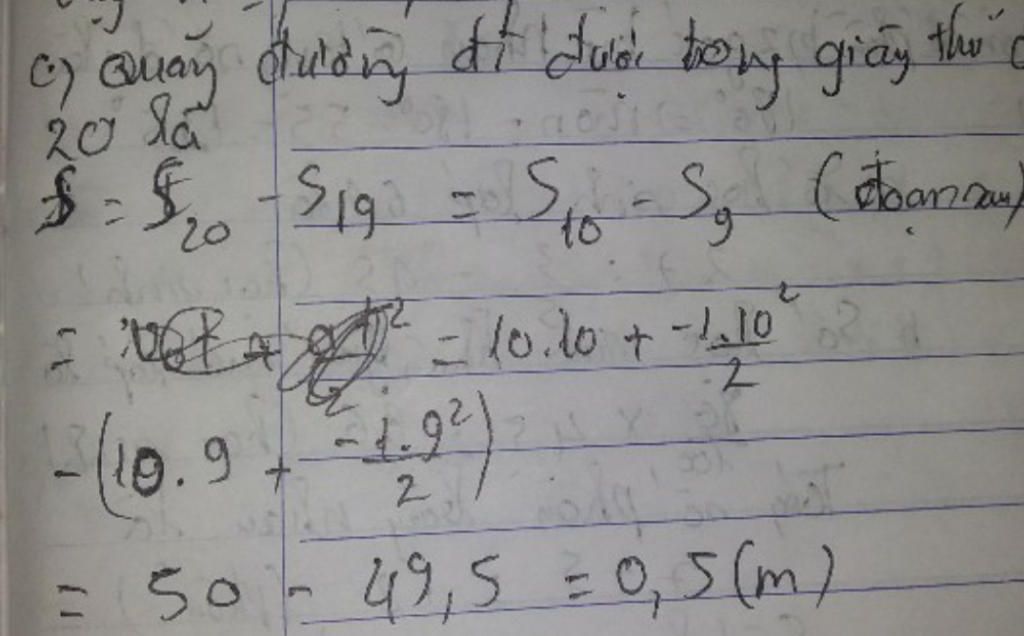 c) Quãng đường đi được trong giây thứ
20 là
S = S₂₀ - S₁₉ = S₁₀ - S₉ (đoạn sau)
= = 10.10 + \frac{-1.10²}{2}
- (10.9 + \frac{-1.9²}{2})
= 50 - 49,5 = 0,5 (m)